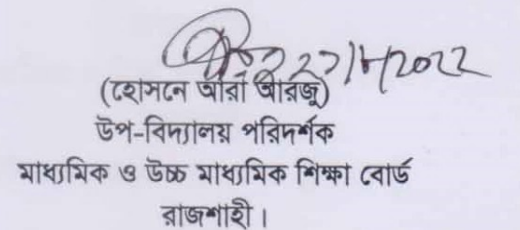 (হোসনে আরা আরজু)
উপ-বিদ্যালয় পরিদর্শক
মাধ্যমিক ও উচ্চ মাধ্যমিক শিক্ষা বোর্ড
রাজশাহী।